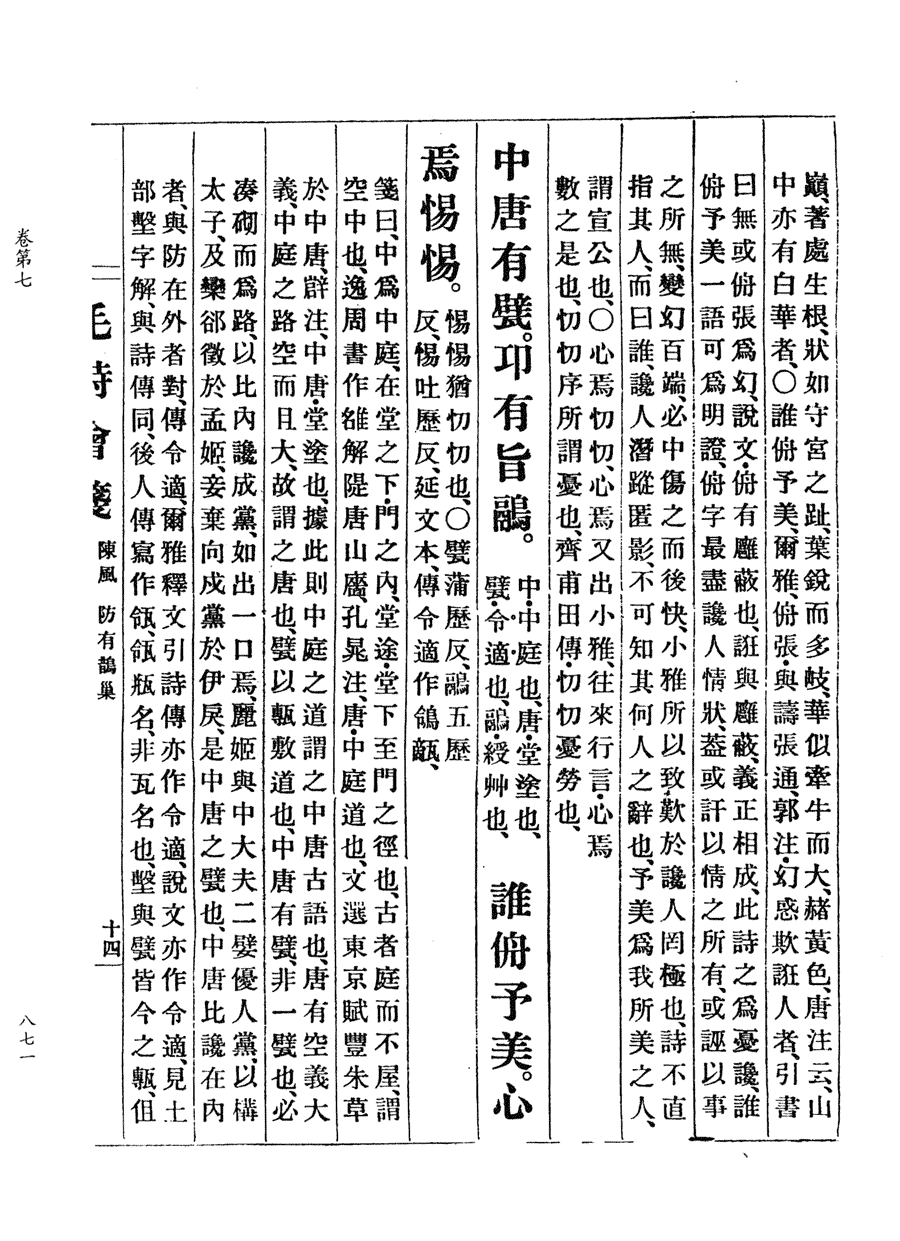 巓、著處生根、狀如守宮之趾、葉銳而多岐、華似牽牛而大、赭黃色、唐注云、山
中亦有白華者、〇誰侜予美、爾雅、侜張・與譸張通、郭注・幻惑欺誑人者、引書
曰無或侜張爲幻、說文・侜有廱蔽也、誑與廱蔽、義正相成、此詩之爲憂讒、誰
侜予美一語可爲明證、侜字最盡讒人情狀、葢或訐以情之所有、或誣以事
之所無、變幻百端、必中傷之而後快、小雅所以致歎於讒人罔極也、詩不直
指其人、而曰誰、讒人潛蹤匿影、不可知其何人之辭也、予美爲我所美之人、
謂宣公也、〇心焉忉忉、心焉又出小雅、往來行言・心焉
數之是也、忉忉序所謂憂也、齊甫田傳・忉忉憂勞也、
中唐有甓。邛有旨鷊。
中・中庭也、唐・堂塗也、
甓・令適也、鷊・綬艸也、
誰侜予美。心
焉惕惕。
惕惕猶忉忉也、〇甓蒲歷反、鷊五歷
反、惕吐歷反、延文本、傳令適作鴿㼾、
箋曰、中爲中庭、在堂之下・門之內、堂途・堂下至門之徑也、古者庭而不屋、謂
空中也、逸周書作雒解隄唐山廧、孔晁注、唐・中庭道也、文選東京賦豐朱草
於中唐、薛注、中唐・堂塗也、據此則中庭之道謂之中唐古語也、唐有空義大
義、中庭之路空而且大、故謂之唐也、甓以甎敷道也、中唐有甓、非一甓也、必
湊砌而爲路、以比內讒成黨、如出一口焉、麗姬與中大夫二嬖優人黨、以構
太子、及欒郤徵於孟姬、妾棄向戍黨於伊戾、是中唐之甓也、中唐比讒在內
者、與防在外者對、傳令適、爾雅釋文引詩傳亦作令適、說文亦作令適、見土
部墼字解、與詩傳同、後人傳寫作瓴、瓴瓶名、非瓦名也、墼與甓皆今之甎、但
毛詩會箋 陳風 防有鵲巢
十四
卷第七
八七一